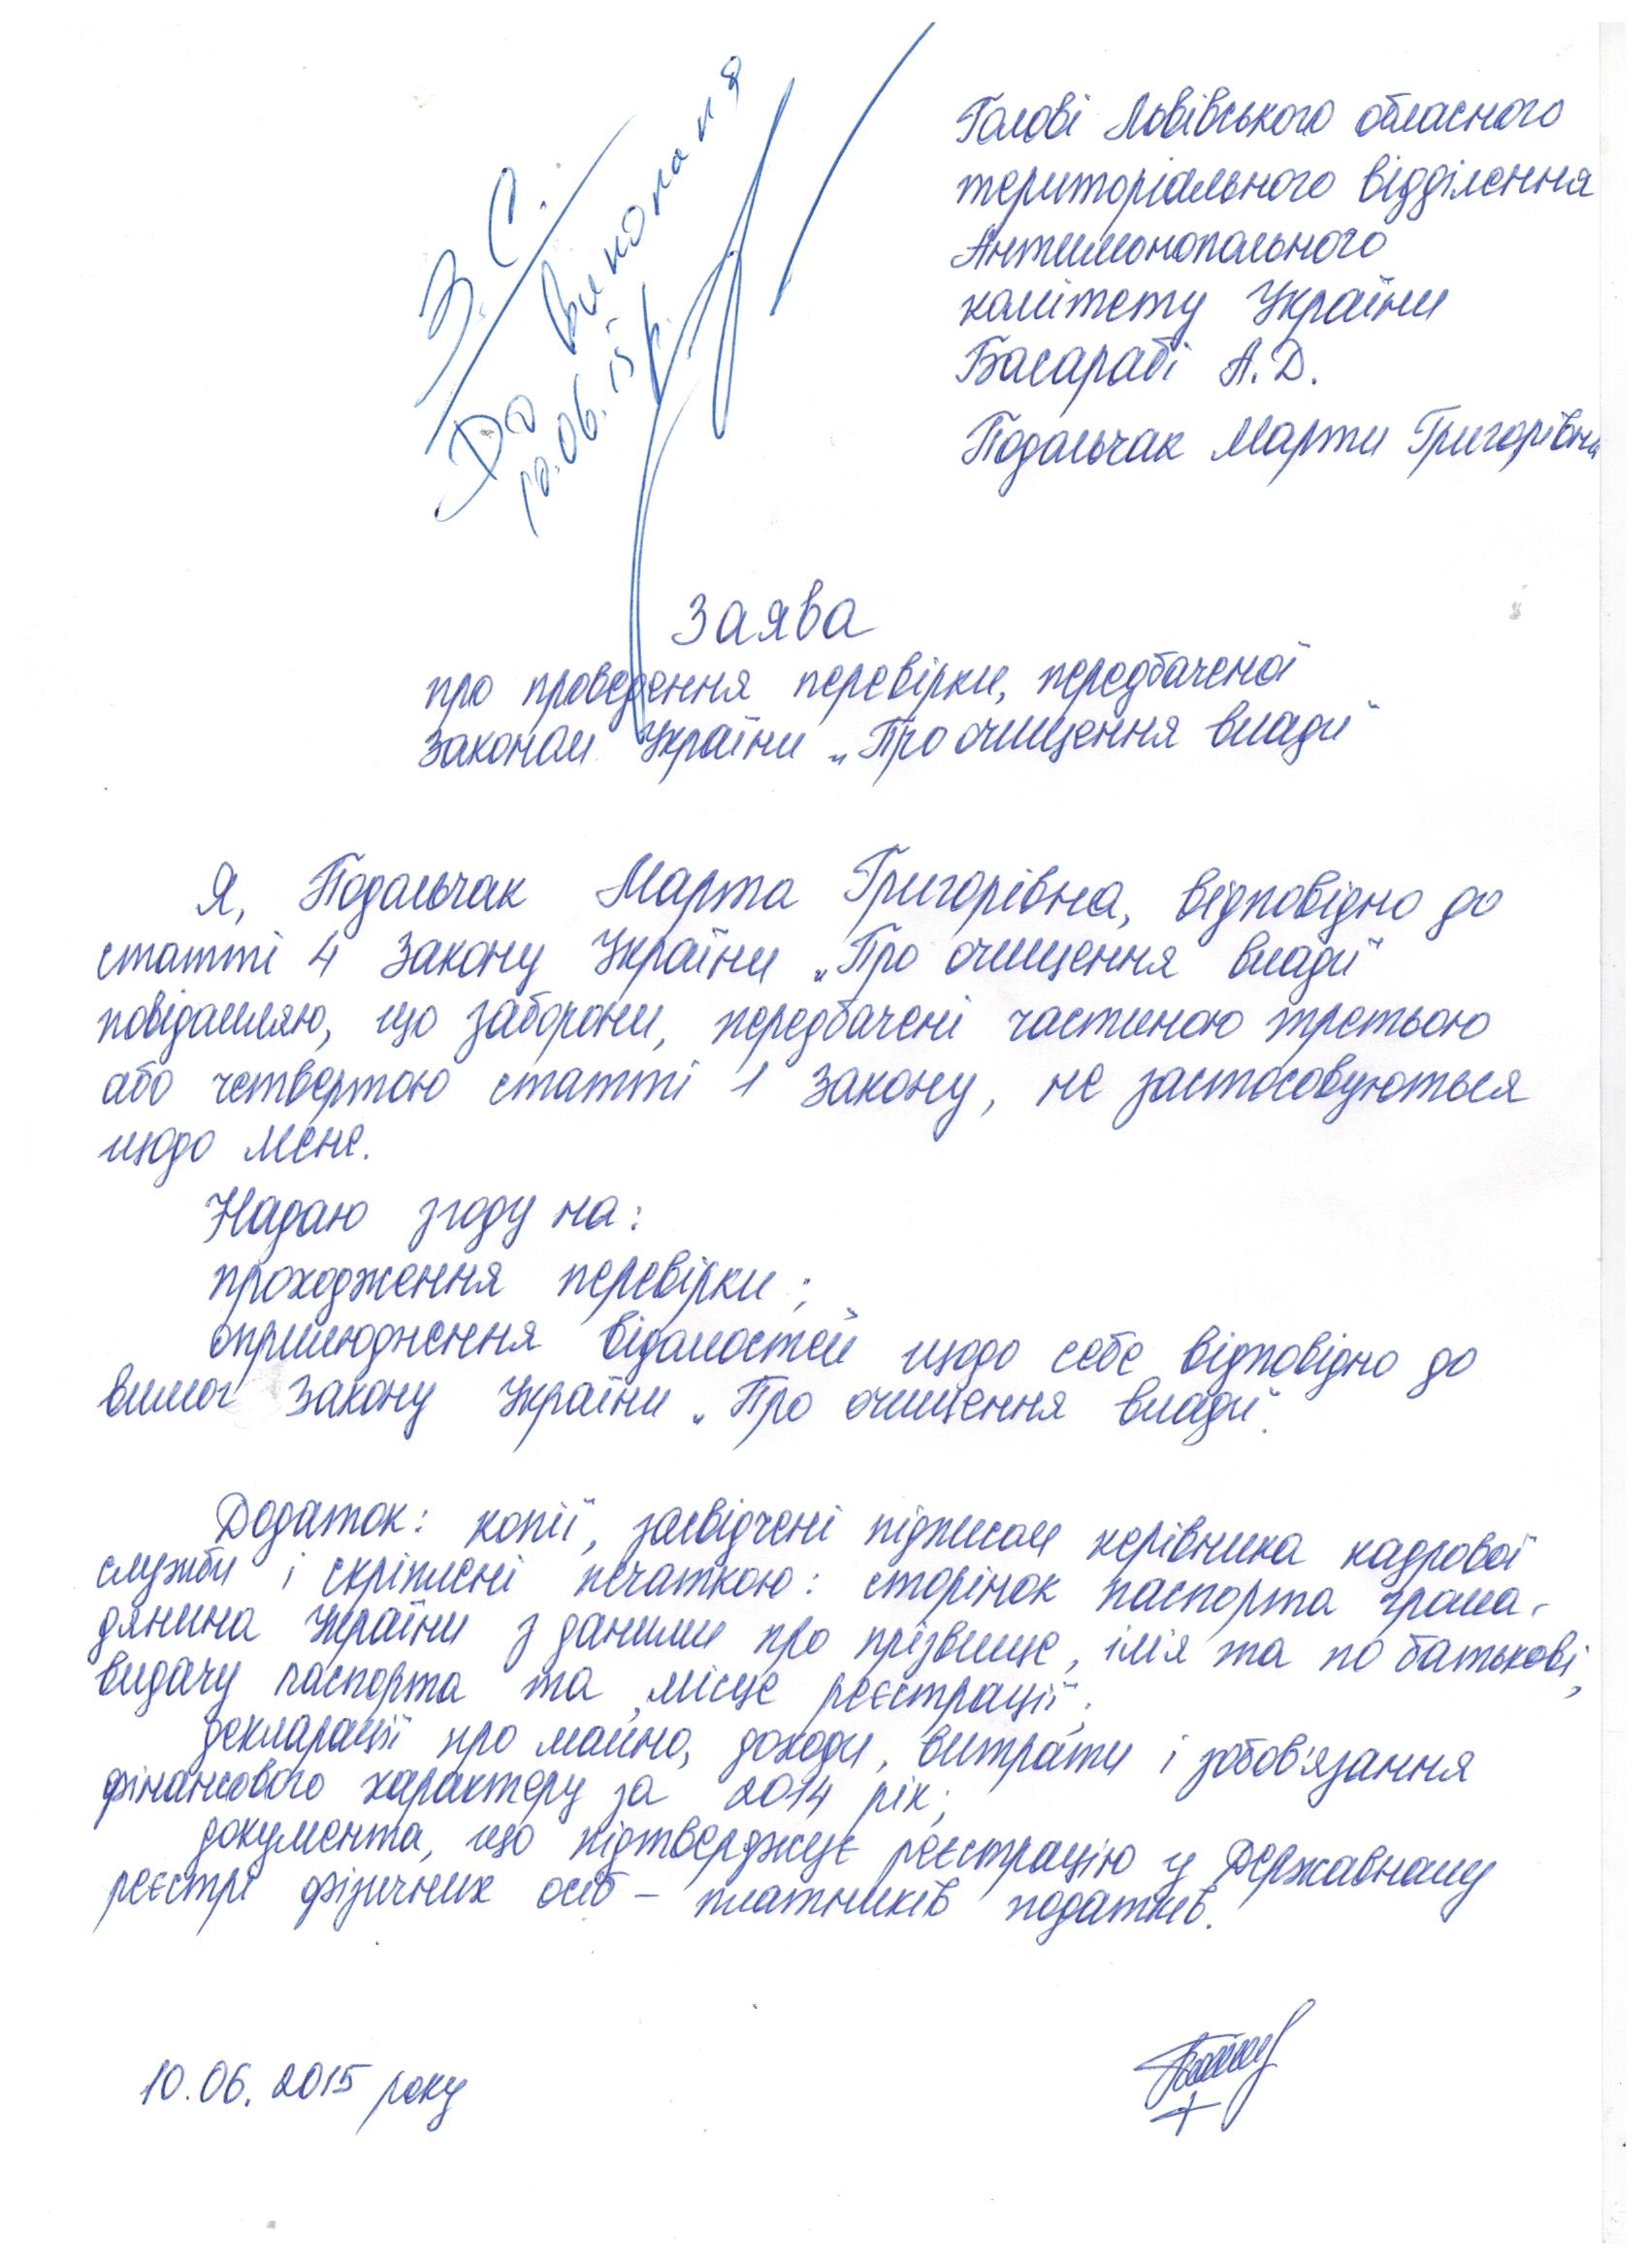 З. С.
До виконання
10.06.15 р.
Голові Львівського обласного
територіального відділення
Антимонопольного
комітету України
Басарабі А.Д.
Подольчак Марти Григорівни
Заява
про проведення перевірки, передбаченої
Законом України „Про очищення влади"
Я, Подольчак Марта Григорівна, відповідно до
статті 4 Закону України „Про очищення влади"
повідомляю, що заборони, передбачені частиною третьою
або четвертою статті 1 Закону, не застосовуються
щодо мене.
Надаю згоду на:
проходження перевірки;
оприлюднення відомостей щодо себе відповідно до
вимог Закону України „Про очищення влади".
Додаток: копії, засвідчені підписом керівника кадрової
служби і скріплені печаткою: сторінок паспорта грома-
дянина України з даними про прізвище, ім'я та по батькові,
видачу паспорта та місце реєстрації;
декларації про майно, доходи, витрати і зобов'язання
фінансового характеру за 2014 рік;
документа, що підтверджує реєстрацію у Державному
реєстрі фізичних осіб – платників податків.
10.06.2015 року